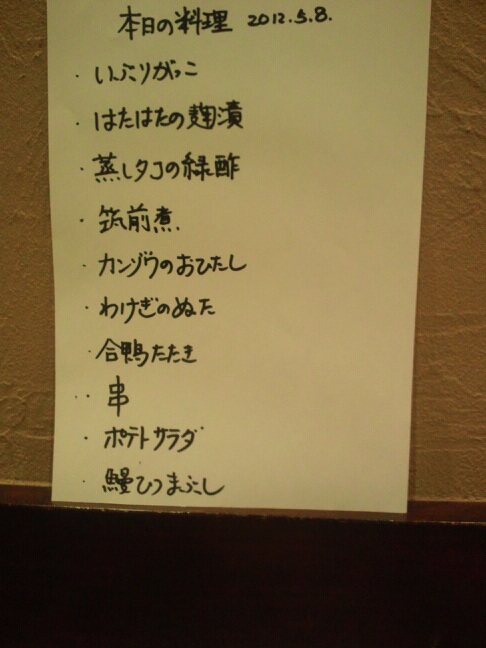 本日の料理 2012.5.8.
・いぶりがっこ
・はたはたの麹漬
・蒸しタコの緑酢
・筑前煮
・カンゾウのおひたし
・わけぎのぬた
・合鴨たたき
・串
・ポテトサラダ
・鰻ひつまぶし